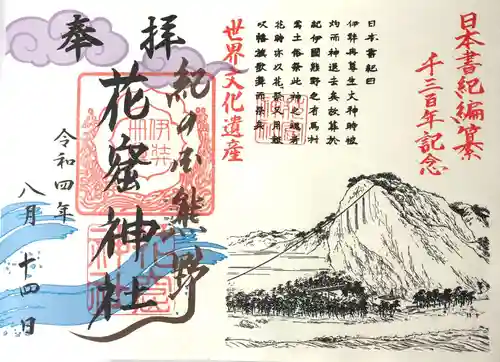 日本書紀編纂
千三百年記念
日本書紀曰
伊弉冉尊生火神時被
灼而神退去矣故葬於
紀伊國熊野之有馬村
焉土俗祭此神之魂者
花時亦以花祭又用鼓
吹幡旗歌舞而祭矣
世界文化遺産
奉拝
紀の国熊野
花窟神社
令和四年
八月十四日